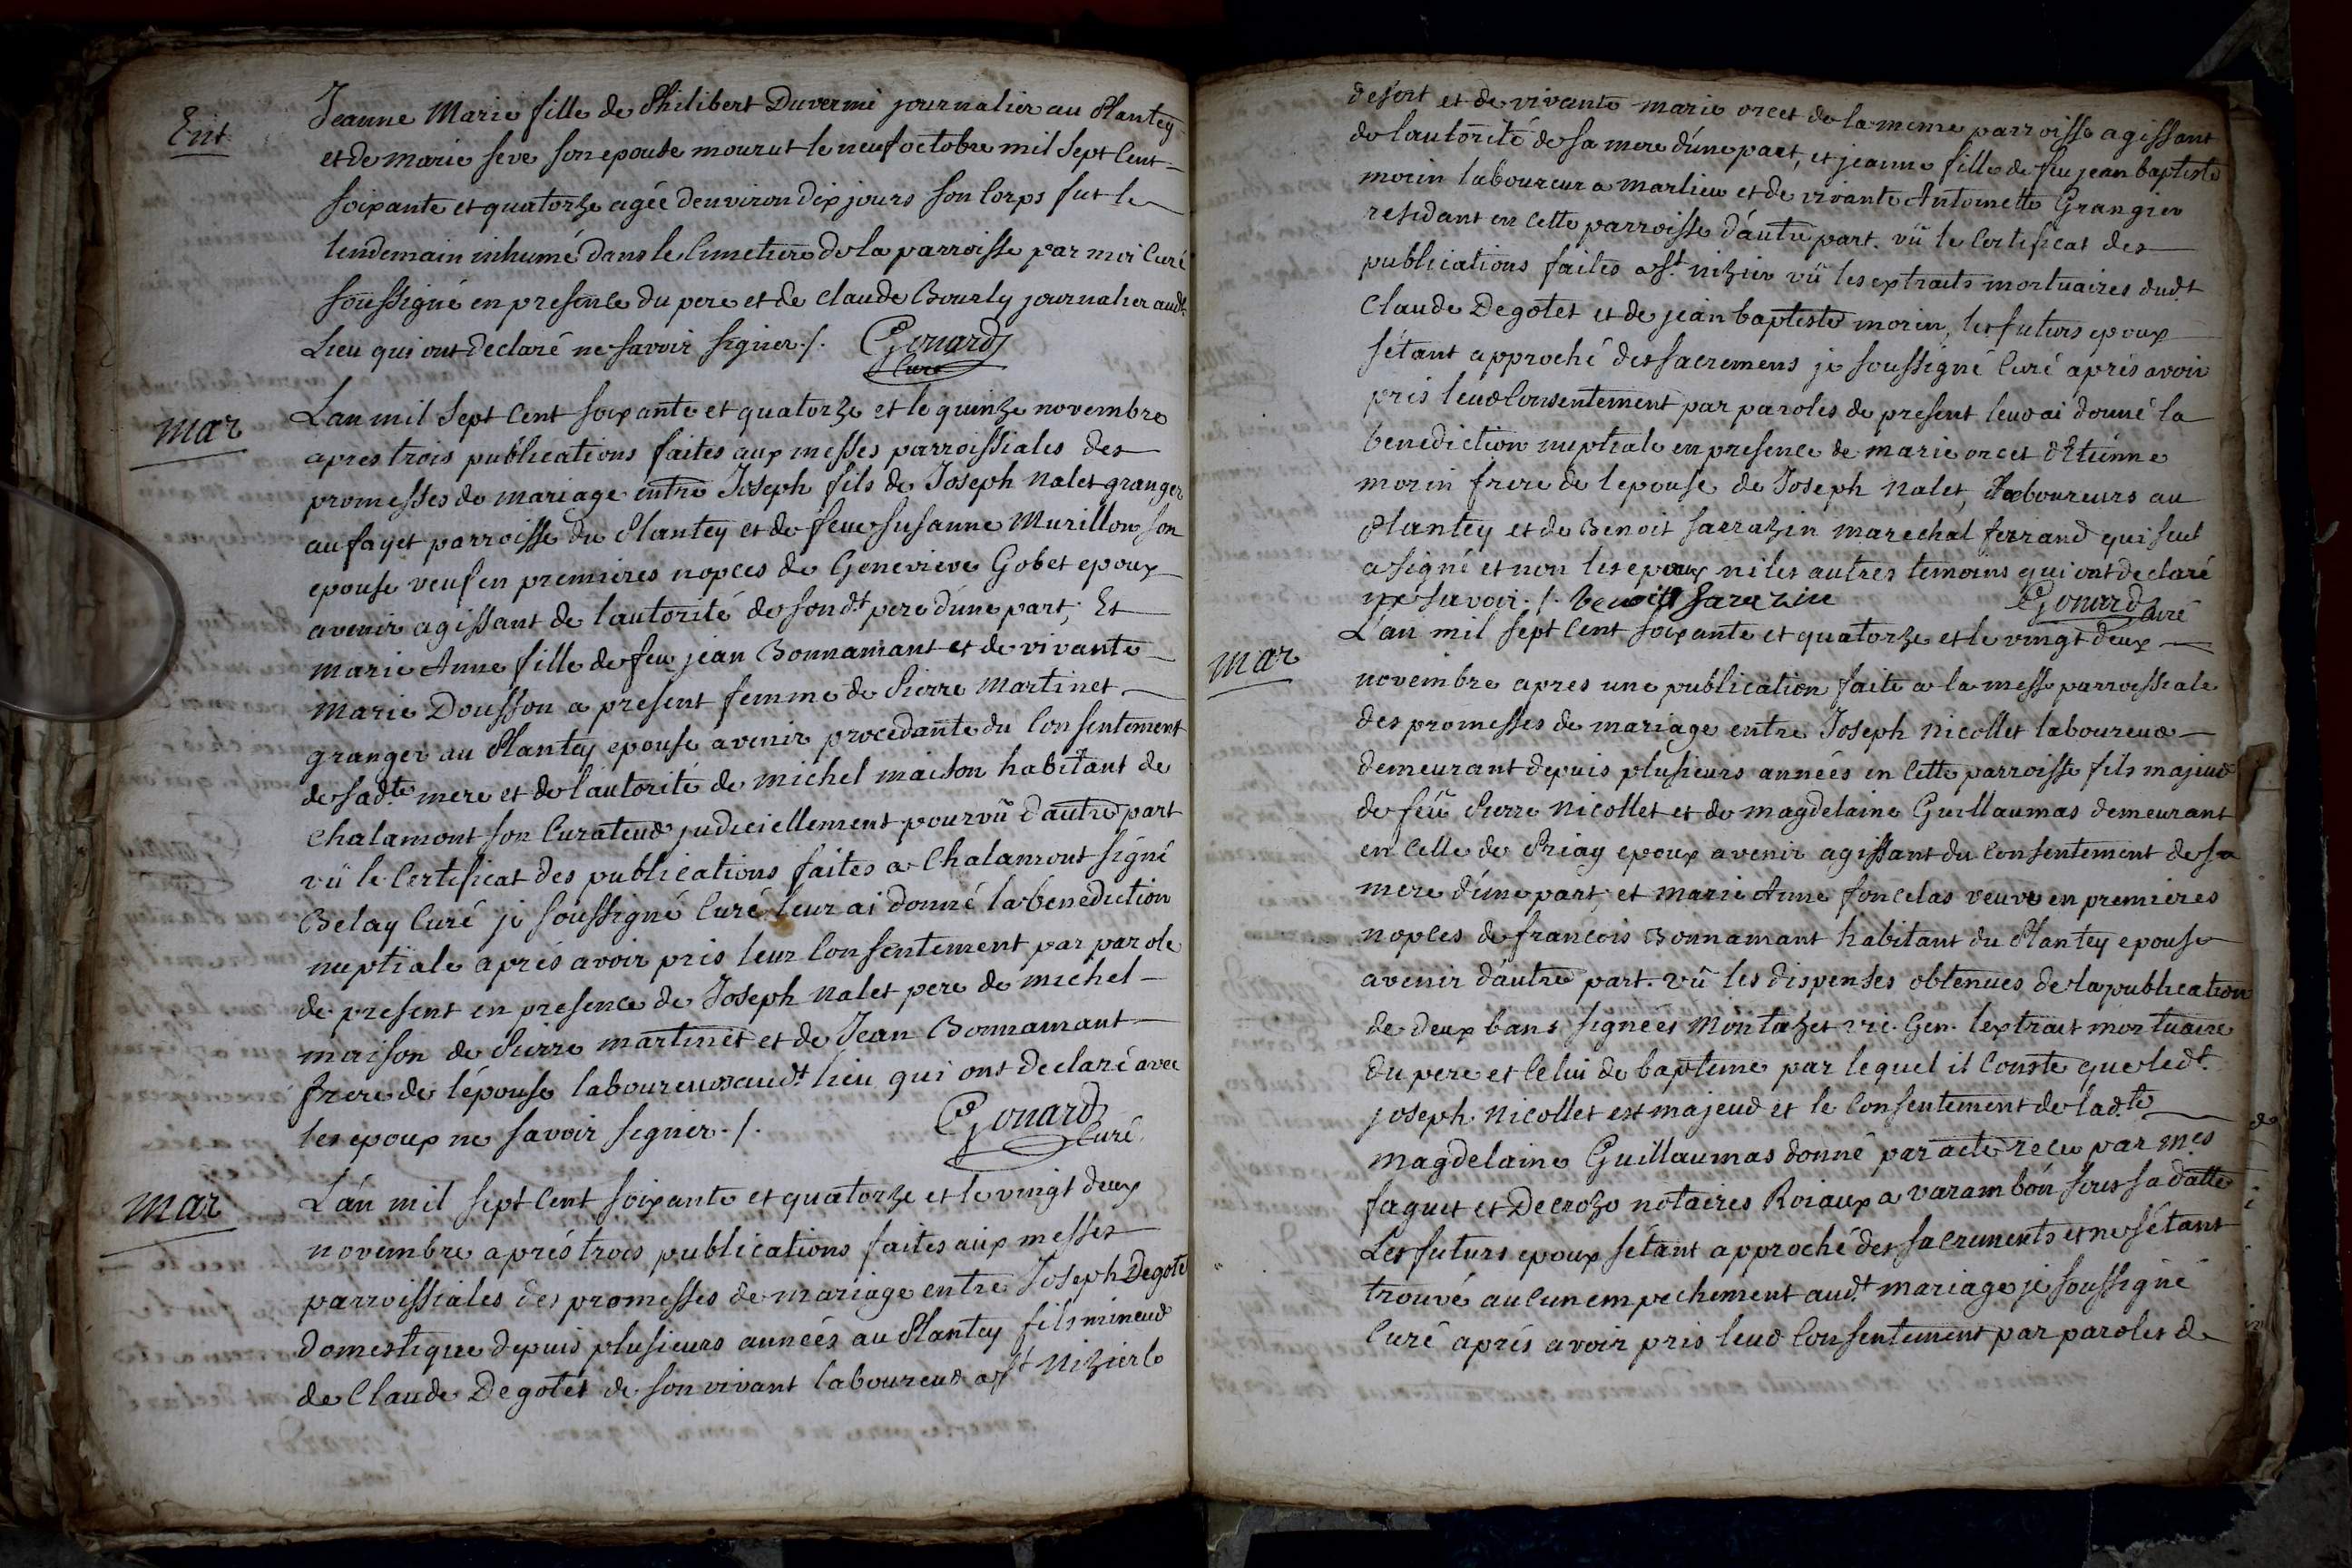 Ent.
Jeanne Marie fille de Philibert Duvermi journalier au Plantey
et de marie seve son epouse mourut le neuf octobre mil sept cent
soixante et quatorze agée denviron dix jours son corps fut le
lendemain inhumé dans le cimetiere de la parroisse par moi curé
soussigné en presence du pere et de claude Bourly journalier audt.
Lieu qui ont declaré ne savoir signer ./. Gonard
Curé
mar
Lan mil sept cent soixante et quatorze et le quinze novembre
apres trois publications faites aux messes parroissiales des
promesses de mariage entre Joseph fils de Joseph Nalet granger
au fayet parroisse du Plantey et de feue susanne Murillon son
epouse veuf en premieres nopces de Genevieve Gobet epoux
avenir agissant de lautorité de sondt. pere d'une part; Et
marie Anne fille de feu jean Bonnamant et de vivante
marie Dousson a present femme de Pierre Martinet
granger au Plantey epouse avenir procedante du consentement
de sadte. mere et de lautorité de michel maison habitant de
chalamont son curateur judiciellement pourvû d'autre part
vû le certificat des publications faites a chalamont signé
Belay curé je soussigné curé leur ai donné la benediction
nuptiale aprés avoir pris leur consentement par parole
de present en presence de Joseph Nalet pere de michel
maison de Pierre martinet et de Jean Bonnamant
frere de lépouse laboureurs audt. lieu qui ont declaré avec
les epoux ne savoir signer ./. Gonard
Curé
mar
L'an mil sept cent soixante et quatorze et le vingt deux
novembre aprés trois publications faites aux messes
parroissiales des promesses de mariage entre Joseph Degotet
domestique depuis plusieurs années au Plantey fils mineur
de Claude Degotet de son vivant laboureur a st nizier le
desert et de vivante marie orcet de la meme parroisse agissant
de lautorité de sa mere d'une part, et jeanne fille de feu jean baptiste
morin laboureur a marlieu et de vivante Antoinette Grangier
residant en cette parroisse d'autre part. vû le certificat des
publications faites a st. nizier vû les extraits mortuaires dudt
Claude Degotet et de jean baptiste morin, les futurs epoux
sétant approché des sacremens je soussigné curé aprés avoir
pris leur consentement par paroles de present leur ai donné la
benediction nuptiale en presence de marie orcet d'Etienne
morin frere de lepouse de Joseph Nalet, laboureurs au
Plantey et de Benoit sarrazin marechal ferrand qui seul
a signé et non les epoux ni les autres temoins qui ont declaré
ne savoir ./. benoist Sarazin Gonard curé
mar
L'an mil sept cent soixante et quatorze et le vingt deux
novembre apres une publication faite a la messe parroissiale
des promesses de mariage entre Joseph Nicollet laboureur
demeurant depuis plusieurs années en cette parroisse fils majeur
de feû Pierre Nicollet et de magdelaine Guillaumas demeurant
en celle de Priay epoux avenir agissant du consentement de sa
mere d'une part, et marie Anne foncelas veuve en premieres
nopces de francois Bonnamant habitant du Plantey epouse
avenir d'autre part. vû les dispenses obtenues de la publication
de deux bans signées Montazet vic. Gen. lextrait mortuaire
du pere et celui de bapteme par lequel il conste que ledt.
joseph Nicollet est majeur et le consentement de ladte
magdelaine Guillaumas donné par acte recu par mes
faguet et Decrozo notaires Roiaux a varambon sous sa datte
Les futurs epoux sétant approché des sacrements et ne sétant
trouvé aucun empechement audt. mariage je soussigné
Curé aprés avoir pris leur consentement par paroles de